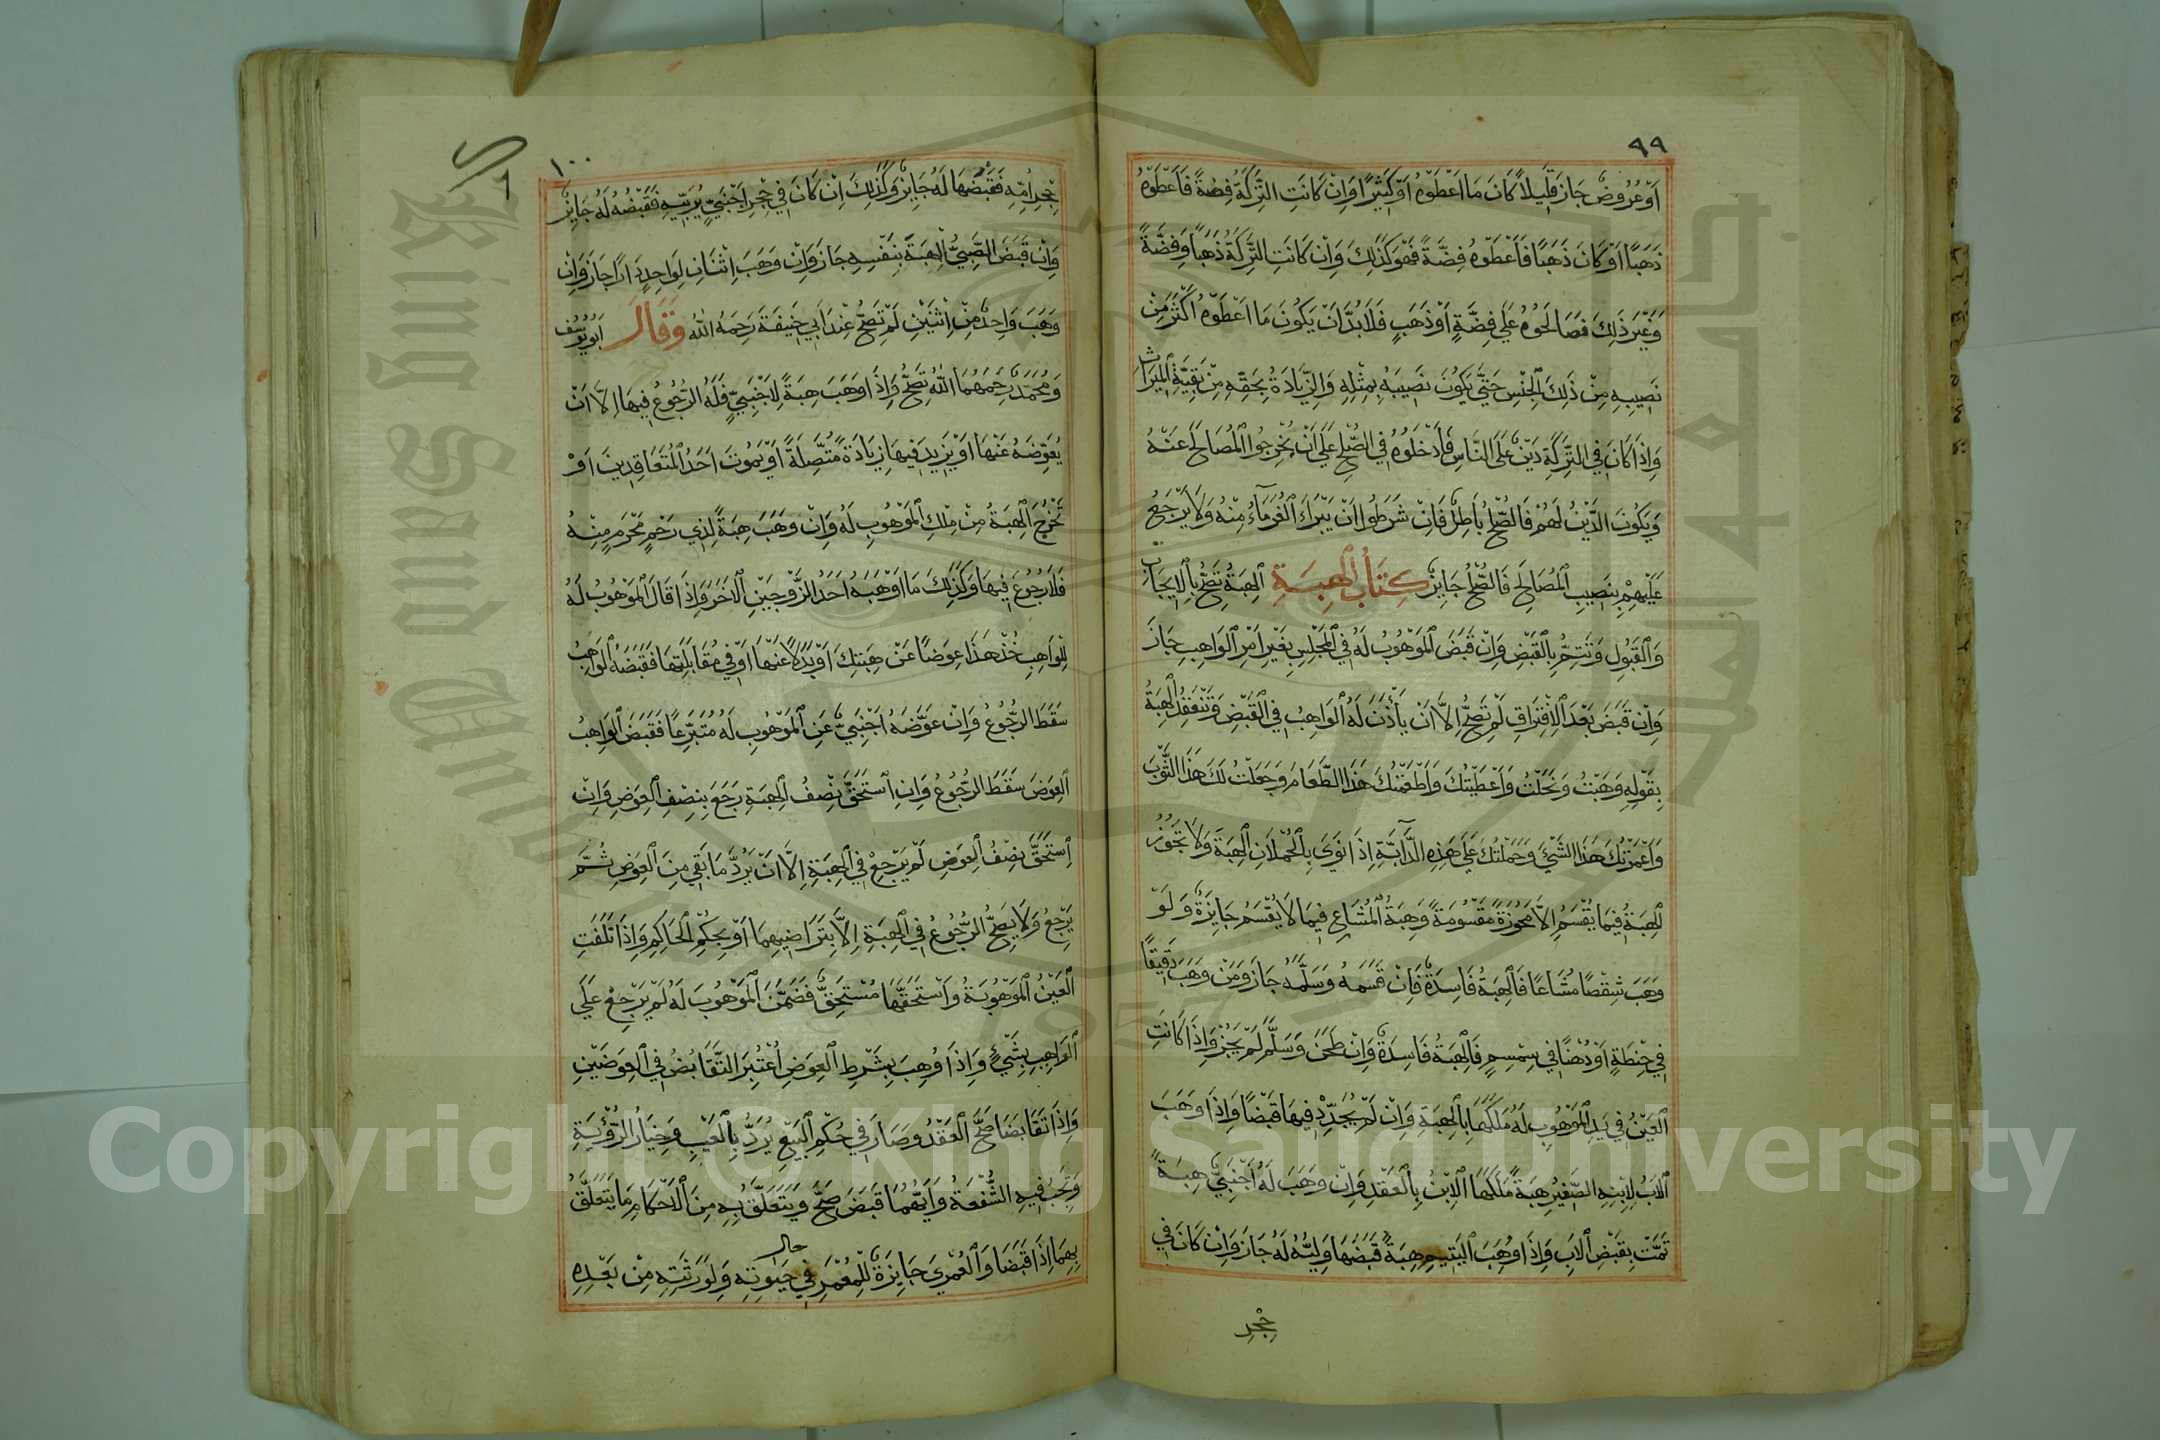 ٩٩
اَوْ عُرُوضٌ جَازَ قَلِيلاً كَانَ مَا اَعْطَوْهُ اَوْ كَثِيرًا وَاِنْ كَانَتِ التَّرِكَةُ فِضَّةً فَاَعْطَوْهُ
ذَهَبًا اَوْ كَانَ ذَهَبًا فَاَعْطَوْهُ فِضَّةً فَهُوَ كَذَلِكَ وَاِنْ كَانَتِ التَّرِكَةُ ذَهَبًا وَفِضَّةً
وَغَيْرَ ذَلِكَ فَصَالَحُوهُ عَلَى فِضَّةٍ اَوْ ذَهَبٍ فَلَا بُدَّ اَنْ يَكُونَ مَا اَعْطَوْهُ اَكْثَرَ مِنْ
نَصِيبِهِ مِنْ ذَلِكَ الْجِنْسِ حَتَّى يَكُونَ نَصِيبُهُ بِمِثْلِهِ وَالزِّيَادَةُ بِحَقِّهِ مِنْ بَقِيَّةِ الْمِيرَاثِ
وَاِذَا كَانَ فِي التَّرِكَةِ دَيْنٌ عَلَى النَّاسِ فَاَدْخَلُوهُ فِي الصُّلْحِ عَلَى اَنْ يُخْرِجُوا الْمُصَالَحَ عَنْهُ
وَيَكُونَ الدَّيْنُ لَهُمْ فَالصُّلْحُ بَاطِلٌ فَاِنْ شَرَطُوا اَنْ يَبْرَاَ الْغُرَمَآءُ مِنْهُ وَلَا يَرْجِعُ
عَلَيْهِمْ بِنَصِيبِ الْمُصَالِحِ فَالصُّلْحُ جَايِزٌ كِتَابُ الْهِبَةِ الْهِبَةُ تَصِحُّ بِالْاِيجَابِ
وَالْقَبُولِ وَتَتِمُّ بِالْقَبْضِ وَاِنْ قَبَضَ الْمَوْهُوبُ لَهُ فِي الْمَجْلِسِ بِغَيْرِ اَمْرِ الْوَاهِبِ جَازَ
وَاِنْ قَبَضَ بَعْدَ الْاِفْتِرَاقِ لَمْ تَصِحَّ اِلَّا اَنْ يَأْذَنَ لَهُ الْوَاهِبُ فِي الْقَبْضِ وَتَنْعَقِدُ الْهِبَةُ
بِقَوْلِهِ وَهَبْتُ وَنَحَلْتُ وَاَعْطَيْتُكَ وَاَطْعَمْتُكَ هَذَا الطَّعَامَ وَجَعَلْتُ لَكَ هَذَا الثَّوْبَ
وَاَعْمَرْتُكَ هَذَا الشَّيْئَ وَحَمَلْتُكَ عَلَى هَذِهِ الدَّآبَّةِ اِذَا نَوَى بِالْحُمْلَانِ الْهِبَةَ وَلَا تَجُوزُ
الْهِبَةُ فِيمَا يُقْسَمُ اِلَّا مَحُوزَةً مَقْسُومَةً وَهِبَةُ الْمُشَاعِ فِيمَا لَا يُقْسَمُ جَايِزَةٌ وَلَوْ
وَهَبَ شِقْصًا مُشَاعًا فَالْهِبَةُ فَاسِدَةٌ فَاِنْ قَسَمَهُ وَسَلَّمَهُ جَازَ وَمَنْ وَهَبَ دَقِيقًا
فِي حِنْطَةٍ اَوْ دُهْنًا فِي سِمْسِمٍ فَالْهِبَةُ فَاسِدَةٌ وَاِنْ طَحَنَ وَسَلَّمَ لَمْ يَجُزْ وَاِذَا كَانَتِ
الْعَيْنُ فِي يَدِ الْمَوْهُوبِ لَهُ مَلَكَهَا بِالْهِبَةِ وَاِنْ لَمْ يُجَدِّدْ فِيهَا قَبْضًا وَاِذَا وَهَبَ
الْاَبُ لِابْنِهِ الصَّغِيرِ هِبَةً مَلَكَهَا الْاِبْنُ بِالْعَقْدِ وَاِنْ وَهَبَ لَهُ اَجْنَبِيٌّ هِبَةً
تَمَّتْ بِقَبْضِ الْاَبِ وَاِذَا وُهِبَ الْيَتِيمِ هِبَةً قَبَضَهَا وَلِيُّهُ لَهُ جَازَ وَاِنْ كَانَ فِي
حِجْرِ
١٠٠
حِجْرِ اُمِّهِ فَقَبْضُهَا لَهُ جَايِزٌ وَكَذَلِكَ اِنْ كَانَ فِي حِجْرِ اَجْنَبِيٍّ يُرَبِّيهِ فَقَبْضُهُ لَهُ جَايِزٌ
وَاِنْ قَبَضَ الصَّبِيُّ الْهِبَةَ بِنَفْسِهِ جَازَ وَاِنْ وَهَبَ اِثْنَانِ لِوَاحِدٍ دَارًا جَازَ وَاِنْ
وَهَبَ وَاحِدٌ مِنْ اِثْنَيْنِ لَمْ تَصِحَّ عِنْدَ اَبِي حَنِيفَةَ رَحِمَهُ اللّٰهُ وَقَالَ اَبُو يُوسُف
وَمُحَمَّدٌ رَحِمَهُمَا اللّٰهُ تَصِحُّ وَاِذَا وَهَبَ هِبَةً لِاَجْنَبِيٍّ فَلَهُ الرُّجُوعُ فِيهَا اِلَّا اَنْ
يُعَوِّضَهُ عَنْهَا اَوْ يَزِيدَ فِيهَا زِيَادَةً مُتَّصِلَةً اَوْ يَمُوتَ اَحَدُ الْمُتَعَاقِدِينَ اَوْ
تَخْرُجَ الْهِبَةُ مِنْ مِلْكِ الْمَوْهُوبِ لَهُ وَاِنْ وَهَبَ هِبَةً لِذِي رَحِمٍ مَحْرَمٍ مِنْهُ
فَلَا رُجُوعَ فِيهَا وَكَذَلِكَ مَا اَوْهَبَهُ اَحَدُ الزَّوْجَيْنِ الْاٰخَرَ وَاِذَا قَالَ الْمَوْهُوبُ لَهُ
لِلْوَاهِبِ خُذْ هَذَا عِوَضًا عَنْ هِبَتِكَ اَوْ بَدَلًا عَنْهَا اَوْ فِي مُقَابَلَتِهَا فَقَبَضَهُ الْوَاهِبُ
سَقَطَ الرُّجُوعُ وَاِنْ عَوَّضَهُ اَجْنَبِيٌّ عَنِ الْمَوْهُوبِ لَهُ مُتَبَرِّعًا فَقَبَضَ الْوَاهِبُ
الْعِوَضَ سَقَطَ الرُّجُوعُ وَاِنِ اسْتَحَقَّ نِصْفُ الْهِبَةِ رَجَعَ بِنِصْفِ الْعِوَضِ وَاِنِ
اسْتَحَقَّ نِصْفُ الْعِوَضِ لَمْ يَرْجِعْ فِي الْهِبَةِ اِلَّا اَنْ يَرُدَّ مَا بَقِيَ مِنَ الْعِوَضِ ثُمَّ
يَرْجِعُ وَلَا يَصِحُّ الرُّجُوعُ فِي الْهِبَةِ اِلَّا بِتَرَاضِيهِمَا اَوْ بِحُكْمِ الْحَاكِمِ وَاِذَا تَلَفَتِ
الْعَيْنُ الْمَوْهُوبَةُ وَاسْتَحَقَّهَا مُسْتَحِقٌّ فَضَمَّنَ الْمَوْهُوبَ لَهُ لَمْ يَرْجِعْ عَلَى
الْوَاهِبِ بِشَيْءٍ وَاِذَا وُهِبَ بِشَرْطِ الْعِوَضِ اُعْتُبِرَ التَّقَابُضُ فِي الْعِوَضَيْنِ
وَاِذَا تَقَابَضَا صَحَّ الْعَقْدُ وَصَارَ فِي حُكْمِ الْبَيْعِ يُرَدُّ بِالْعَيْبِ وَخِيَارُ الرُّؤْيَةِ
وَتَجِبُ فِيهِ الشُّفْعَةُ وَاَيُّهُمَا قَبَضَ صَحَّ وَيَتَعَلَّقُ بِهِ مِنَ الْاَحْكَامِ مَا يَتَعَلَّقُ
بِهِمَا اِذَا قَبَضَا وَالْعُمْرَى جَايِزَةٌ لِلْمُعْمَرِ فِي حَيٰوتِهِ وَلِوَرَثَتِهِ مِنْ بَعْدِهِ
حال
Copyright © King Saud University
King Saud University
جامعة الملك سعود
1957